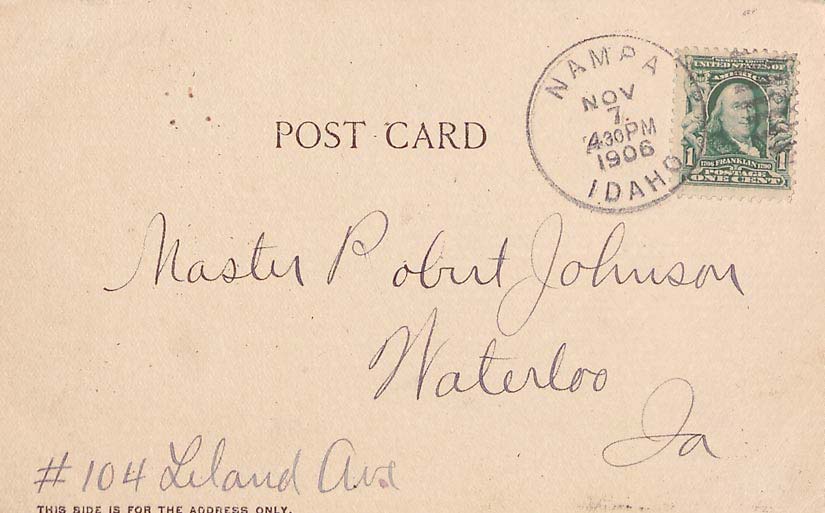 NAMPA
NOV
7
430PM
1906
IDAHO
SERIES 1902
UNITED STATES OF
AMERICA
1 1706 FRANKLIN 1790 1
POSTAGE
ONE CENT
POST CARD
Master Robert Johnson
Waterloo
Ia
#104 Leland Ave
THIS SIDE IS FOR THE ADDRESS ONLY.